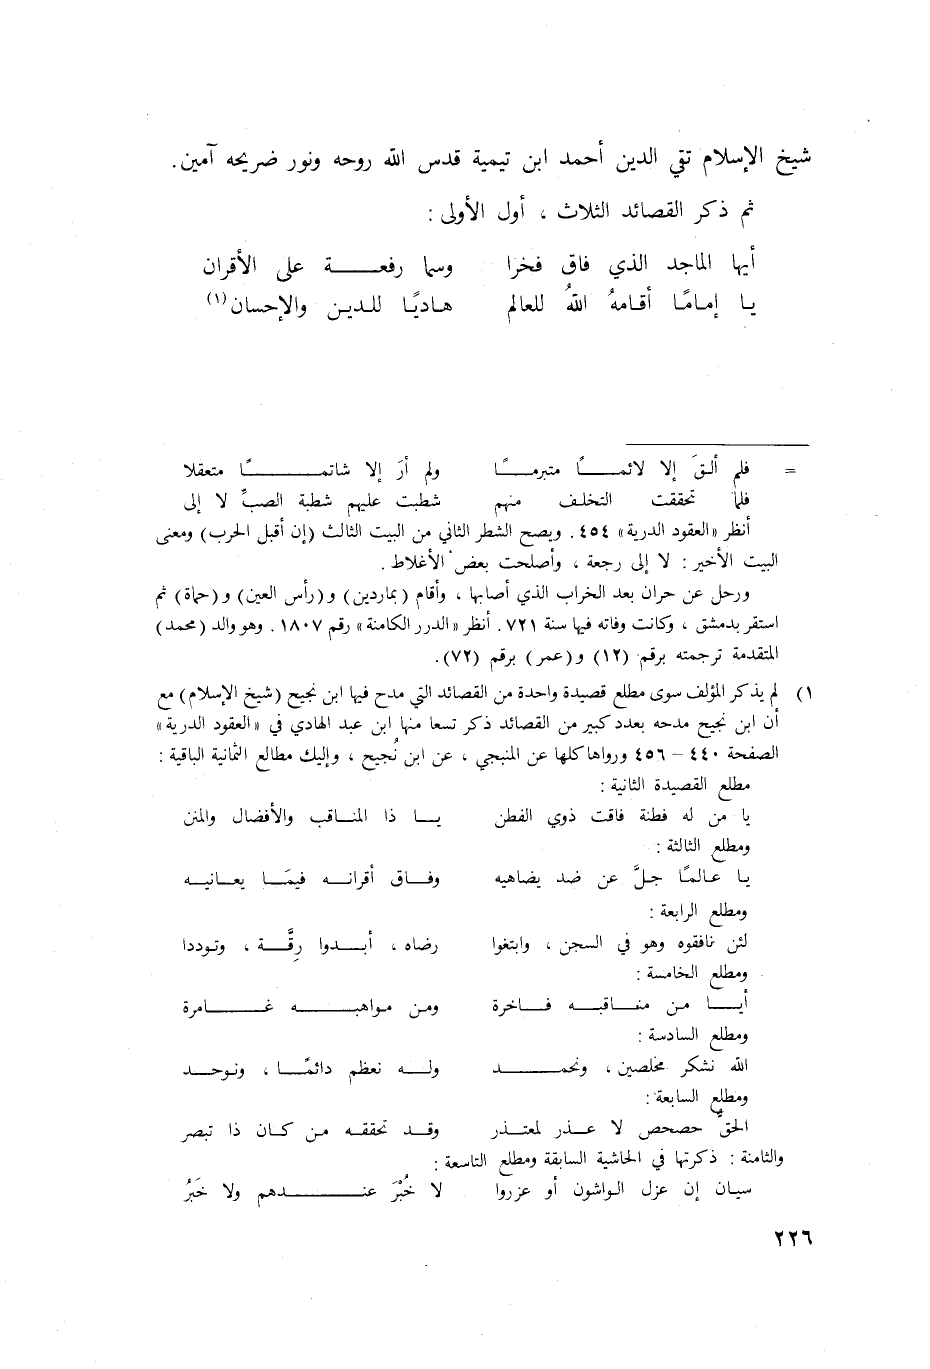 شيخ الإسلام تقي الدين أحمد ابن تيمية قدس الله روحه ونور ضريحه آمين.
ثم ذكر القصائد الثلاث ، أول الأولى :
أيها الماجد الذي فاق فخرا وسما رفعة على الأقران
يا إمامًا أقامهُ اللهُ للعالم هاديًا للدين والإحسان (١)
= فلم ألقَ إلا لائمًا متبرمًا ولم أرَ إلا شاتمًا متعقلا
فلما تحققت التخلف منهم شطبت عليهم شطبة الصبِّ لا إلى
أنظر «العقود الدرية» ٤٥٤. ويصح الشطر الثاني من البيت الثالث (إن أقبل الحرب) ومعنى
البيت الأخير : لا إلى رجعة ، وأصلحت بعض الأغلاط .
ورحل عن حران بعد الخراب الذي أصابها ، وأقام (بماردين) و(رأس العين) و(حماة) ثم
استقر بدمشق ، وكانت وفاته فيها سنة ٧٢١. أنظر «الدرر الكامنة» رقم ١٨٠٧. وهو والد (محمد)
المتقدمة ترجمته برقم (١٢) و(عمر) برقم (٧٢).
١) لم يذكر المؤلف سوى مطلع قصيدة واحدة من القصائد التي مدح فيها ابن نجيح (شيخ الإسلام) مع
أن ابن نجيح مدحه بعدد كبير من القصائد ذكر تسعا منها ابن عبد الهادي في «العقود الدرية»
الصفحة ٤٤٠ – ٤٥٦ ورواها كلها عن المنبجي ، عن ابن نُجيح ، وإليك مطالع الثمانية الباقية :
مطلع القصيدة الثانية :
يا من له فطنة فاقت ذوي الفطن يا ذا المناقب والأفضال والمنن
ومطلع الثالثة :
يا عالمًا جلَّ عن ضد يضاهيه وفاق أقرانه فيمَا يعانيه
ومطلع الرابعة :
لئن نافقوه وهو في السجن ، وابتغوا رضاه ، أبدوا رِقَّة ، وتوددا
ومطلع الخامسة :
أيا من مناقبه فاخرة ومن مواهبه غامرة
ومطلع السادسة :
الله نشكر مخلصين ، ونحمد وله نعظم دائمًا ، ونوحد
ومطلع السابعة :
الحقُّ حصحص لا عذر لمعتذر وقد تحققه من كان ذا تبصر
والثامنة : ذكرتها في الحاشية السابقة ومطلع التاسعة :
سيان إن عزل الواشون أو عزروا لا خُبْرَ عندهم ولا خَبَرُ
٢٢٦